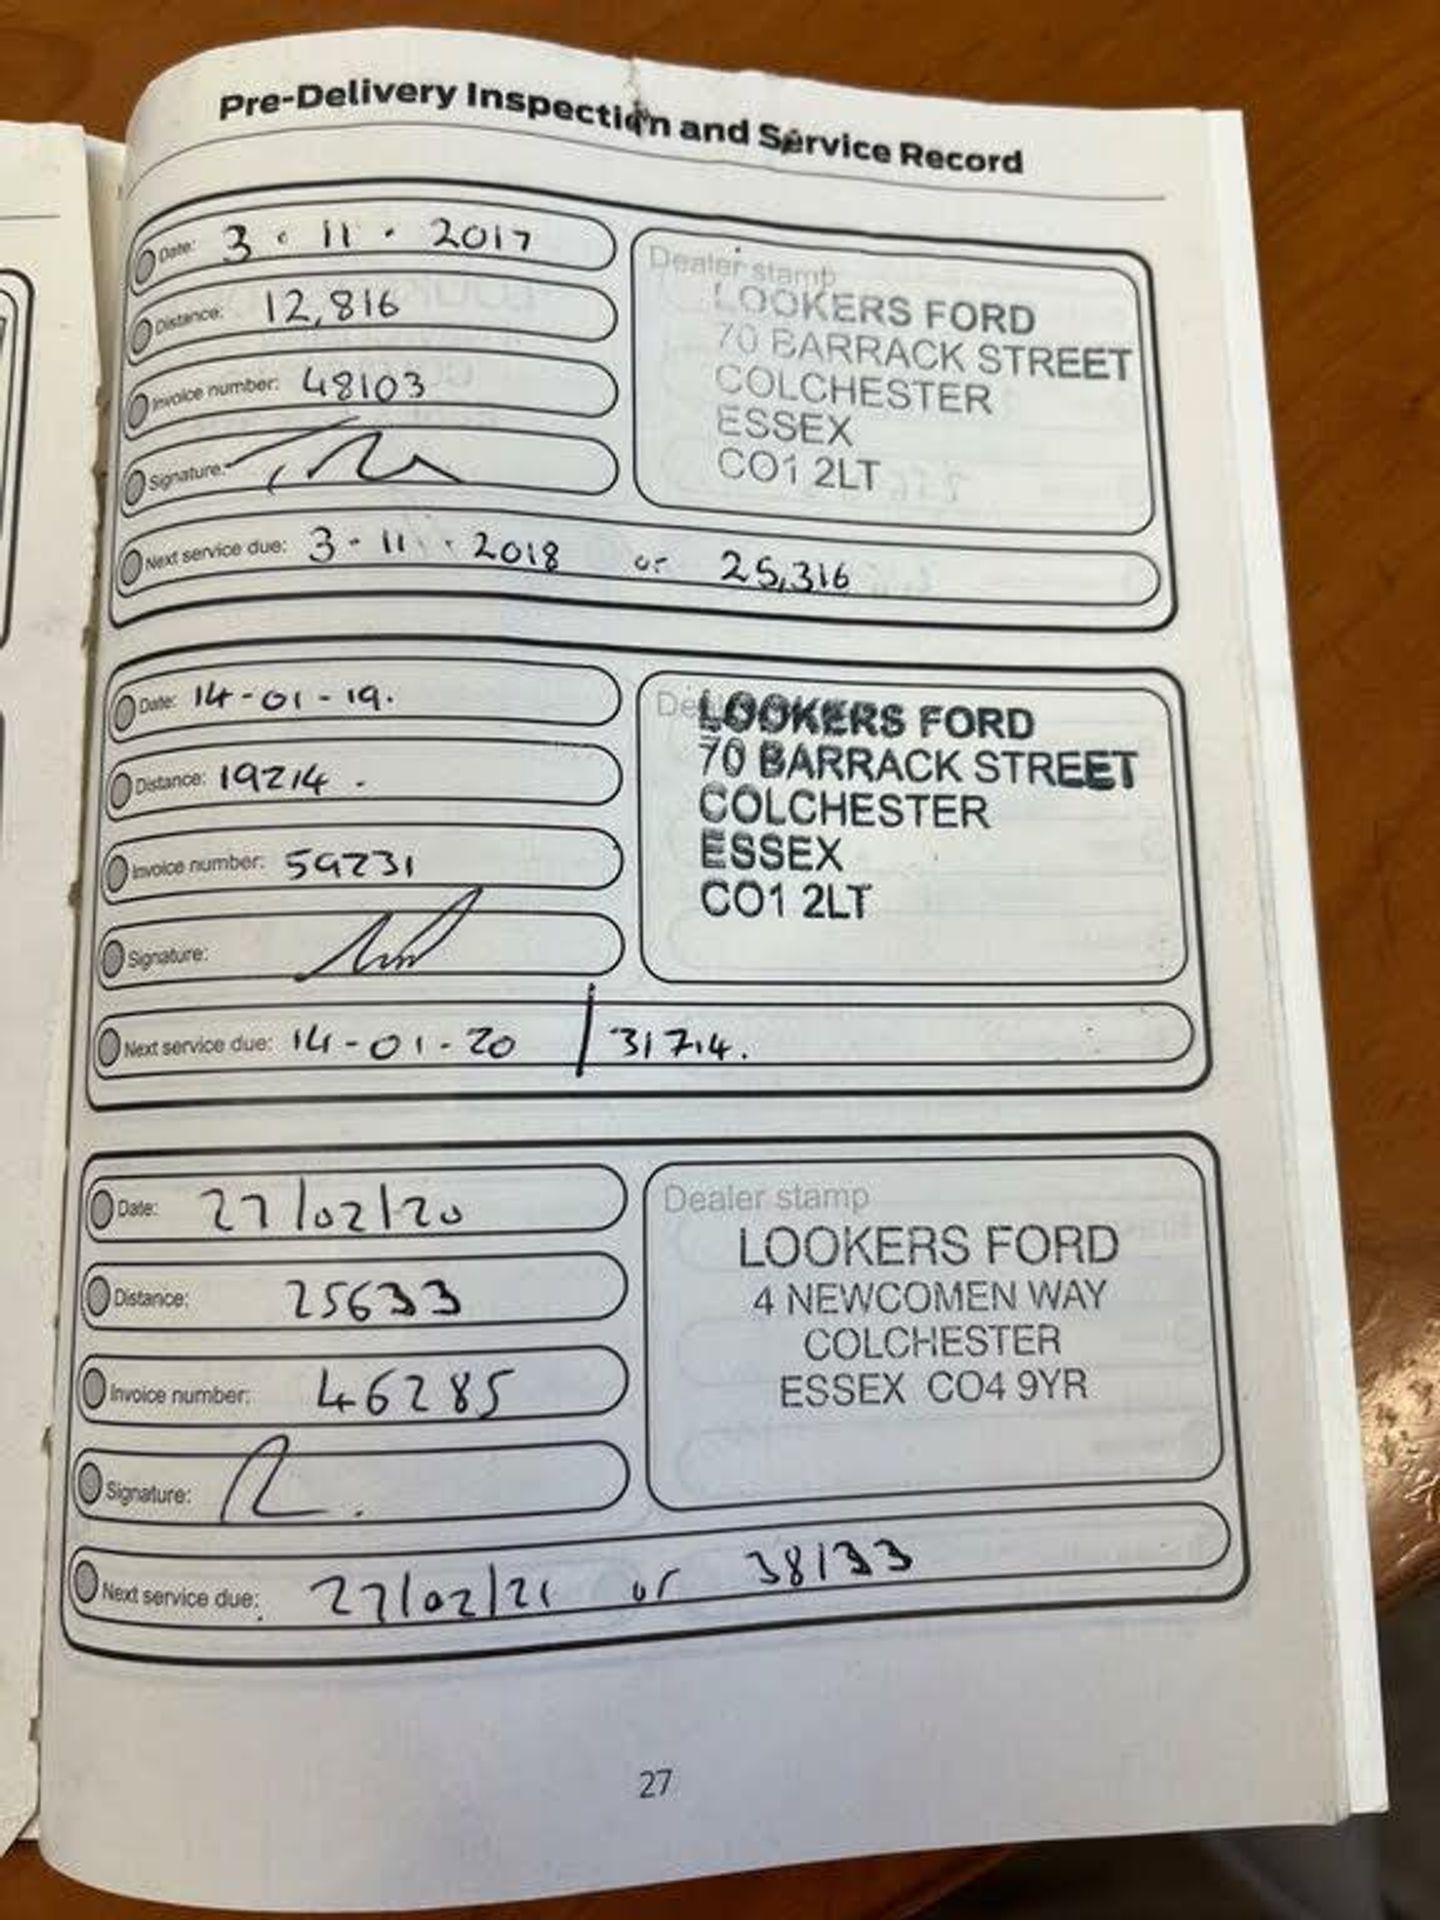 Pre-Delivery Inspection and Service Record
Date: 3 · 11 · 2017
Distance: 12,816
Invoice number: 48103
Signature:
Dealer stamp
LOOKERS FORD
70 BARRACK STREET
COLCHESTER
ESSEX
CO1 2LT
Next service due: 3 - 11 · 2018 or 25,316
Date: 14-01-19.
Distance: 19214.
Invoice number: 59231
Signature:
LOOKERS FORD
70 BARRACK STREET
COLCHESTER
ESSEX
CO1 2LT
Next service due: 14-01-20 / 31714.
Date: 27/02/20
Distance: 25633
Invoice number: 46285
Signature:
Dealer stamp
LOOKERS FORD
4 NEWCOMEN WAY
COLCHESTER
ESSEX CO4 9YR
Next service due: 27/02/21 or 38133
27